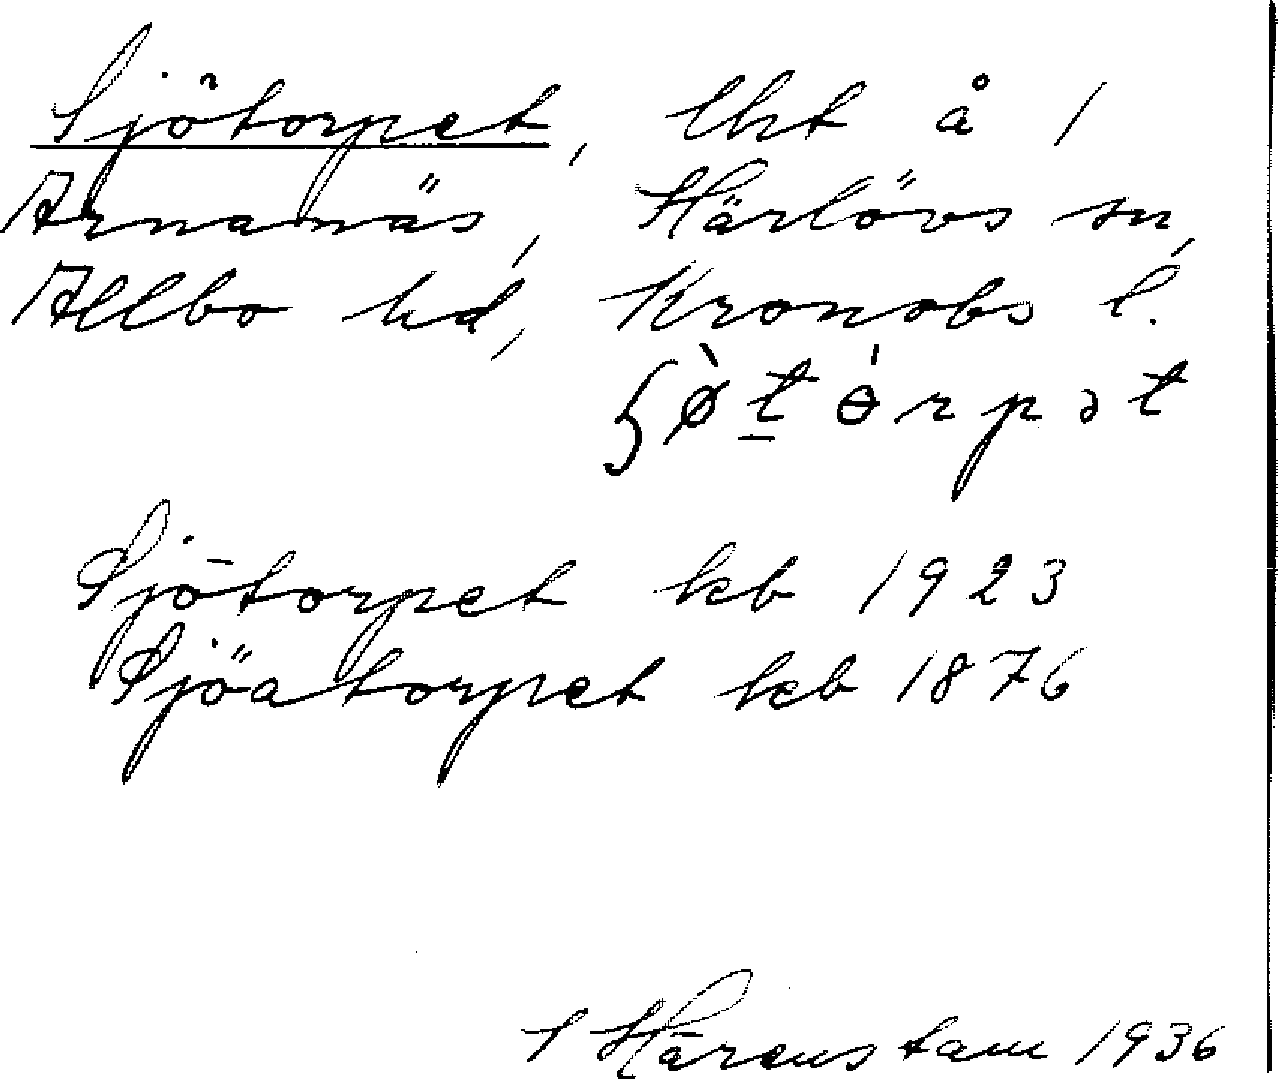 Sjötorpet, lht å 1
Arnanäs, Härlövs sn,
Allbo hd, Kronobs l.
Sjötorpet kb 1923
Sjöatorpet kb 1876
Härenstam 1936